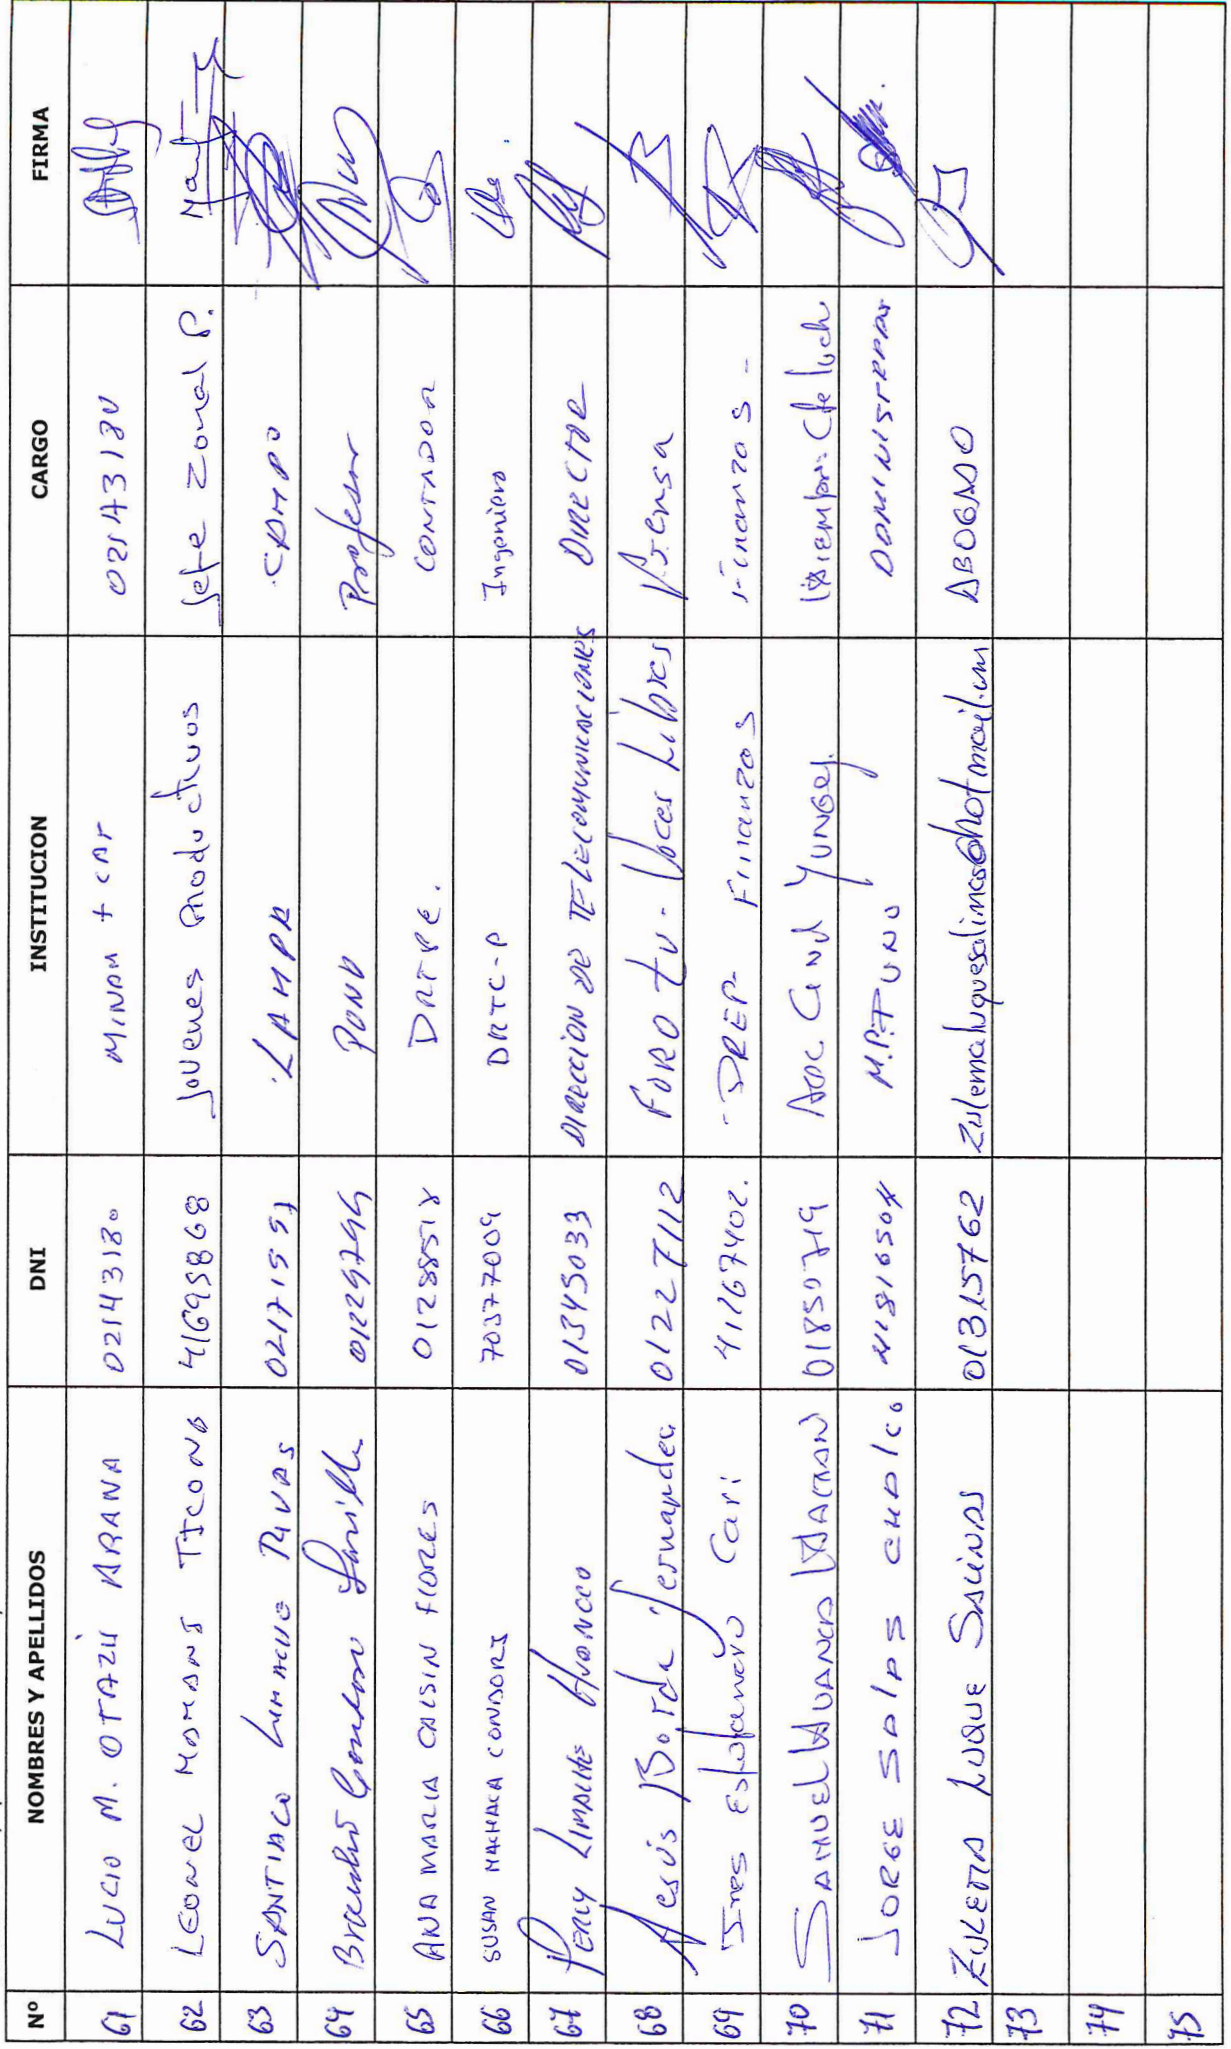 Nº NOMBRES Y APELLIDOS DNI INSTITUCION CARGO FIRMA
61 LUCIO M. OTAZÚ ARANA 02143130 MINAM + CAR 02143130
62 LEONEL MAMANI TICONA 41695868 Jovenes Productivos Jefe Zonal P.
63 SANTIAGO LIMACHE RIVAS 02171557 LAMPA CAMPO
64 01229799 PUNO Profesor
65 ANA MARIA CALSIN FLORES 01288518 DRTPE. CONTADOR
66 SUSAN MACHACA CONDORI 70377009 DRTC-P Ingeniero
67 PERCY LIMACHE HUANCCO 01345033 DIRECCION DE TELECOMUNICACIONES DIRECTOR
68 Jesús Borda Fernandez 01227112 FORO TV - Voces Libres Prensa
69 Ines Estefanero Cari 41167402. DREP- Finanzas Finanzas -
70 SAMUEL HUANCA MAMANI 01850719 Yunguy.
71 JORGE SALAS CHALCO M.P. PUNO
72 ZULEMA LUQUE SALINAS 01315762 zulemaluquesalinas@hotmail.com ABOGADO
73
74
75